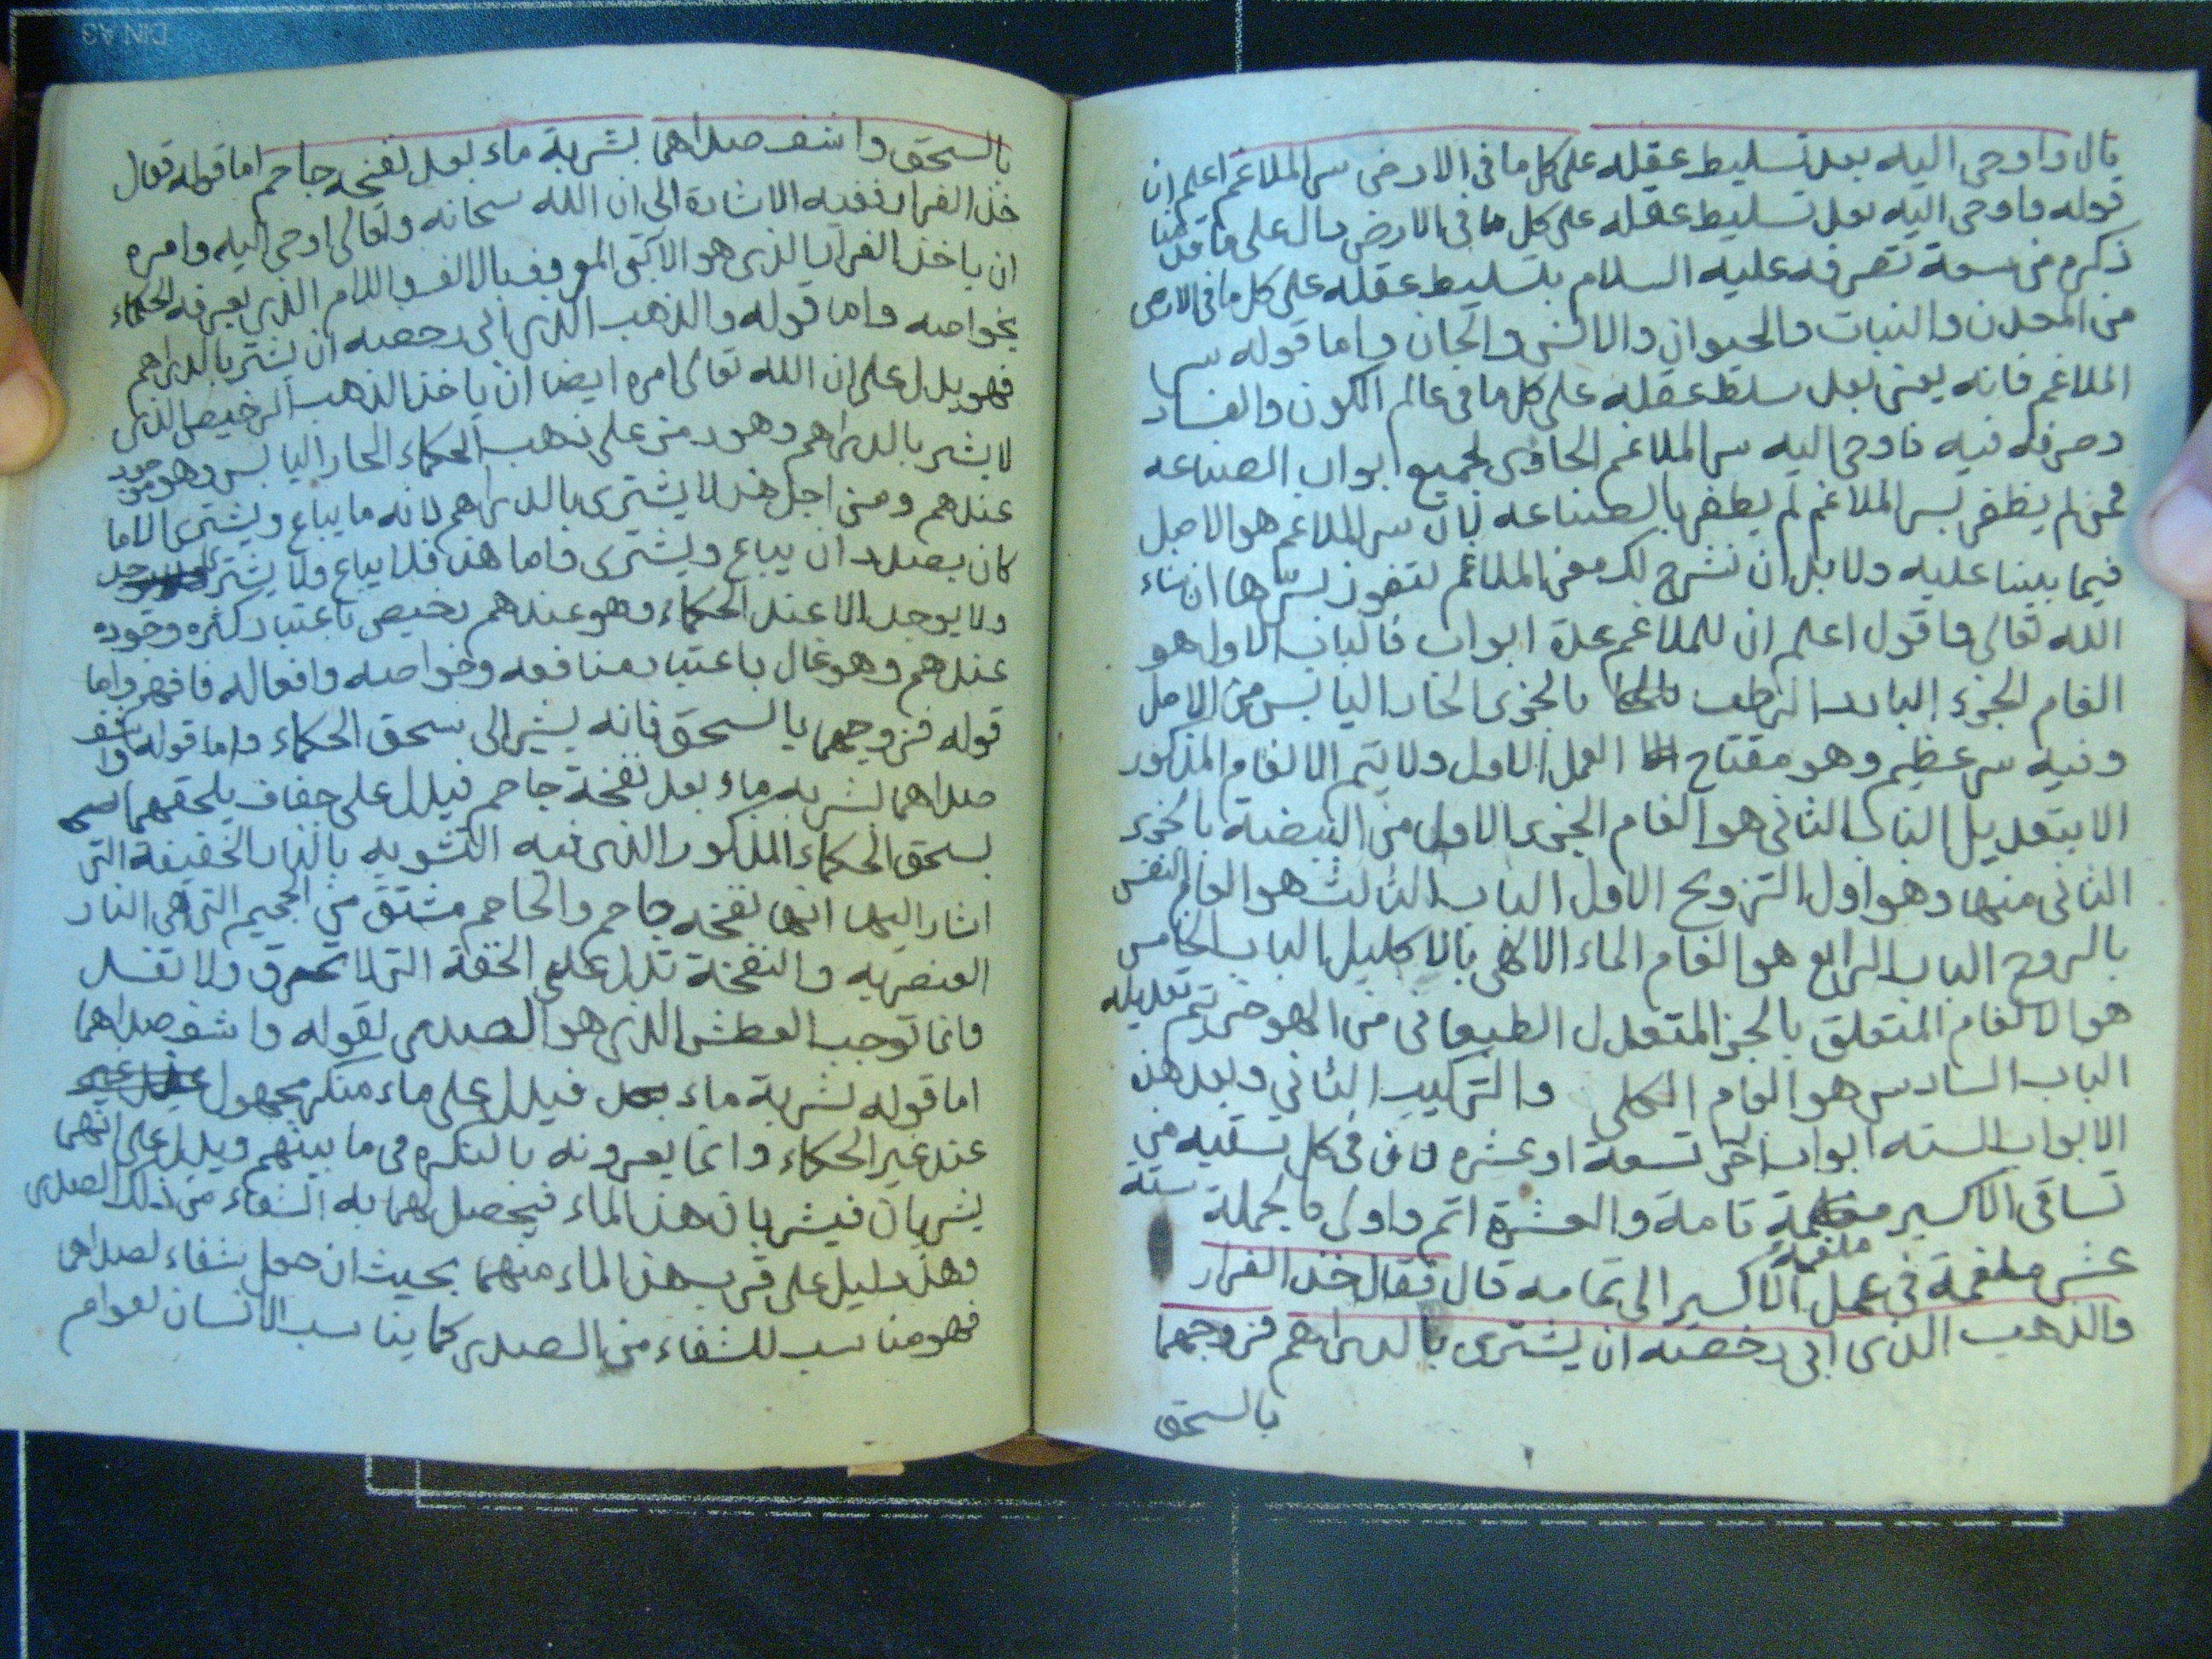 قال واوحى اليه بعد تسليط عقله على كل ما فى الارض سر الملاغم اعلم ان
قوله واوحى اليه بعد تسليط عقله على كل ما فى الارض دال على ما قدمنا
ذكره من سعة تصرفه عليه السلام بتسليط عقله على كل ما فى الارض
من المعدن والنبات والحيوان والانس والجان واما قوله سر
الملاغم فانه يعنى بعد سلط عقله على كل ما فى عالم الكون والفساد
وصرفه فيه فاوحى اليه سر الملاغم الحاوى لجميع ابواب الصناعه
فمن لم يظفر بسر الملاغم لم يظفر بالصناعه لان سر الملاغم هو الاصل
فيما بيننا عليه ولا بد ان نشرح لك معنى الملاغم لتفوز بسرّها ان شاء
الله تعالى فاقول اعلم ان للملاغم عدة ابواب فالباب الاول هو
الغام الجزء البارد الرطب بالجزى الحار اليابس من الاصل
وفيه سر عظيم وهو مفتاح العمل الاول ولا يتم الالغام المذكور
الا بتعديل الباب الثانى هو الغام الجزء الاول من البيضة بالجزء
الثانى منها وهو اول التزويج الاول الباب الثالث هو الغام النفس
بالروح الباب الرابع هو الغام الماء الالاهى بالاكليل الباب الخامس
هو الالغام المتعلق بالجز المتعدل الطبعانى من الهوحتى تم تعديله
الباب السادس هو الغام الكلى والتركيب الثانى وبعد هذه
الابواب السته ابواب اخر تسعة او عشره لان فى كل تسقيه من
تساقى الاكسير ملغمة تامة والعشرة اتم واولى فالجملة ستة
عشر ملغمة فى عمل الاكسير الى تمامه قال فقال خذ الفرار
ملغمة
والذهب الذى ابى رخصه ان يشترى بالدراهم فزوجهما
بالسحق
بالسحق واشف صداهما بشربة ماء بعد نفخه جاحم اما قوله فقال
خذ الفرار ففيه الاشارة الى ان الله سبحانه وتعالى اوحى اليه وامره
ان ياخذ الفرار الذى هو الابق المعروف بالالف واللام الذى يعرفه الحكماء
بخواصه واما قوله والذهب الذى ابى رخصه ان يشتر بالدراهم
فهو يدل على ان الله تعالى امره ايضا ان ياخذ الذهب الرخيص الذى
لا يشر بالدراهم وهو رمز على ذهب الحكماء الحار اليابس وهو موجود
عندهم ومن اجل هذا لا يشترى بالدراهم لانه ما يباع ويشترى الا ما
كان بصدد ان يباع ويشترى واما هذا فلا يباع ولا يشتر
ولا يوجد الا عند الحكماء وهو عندهم رخيص باعتبار كثره وجوده
عندهم وهو غال باعتبار منافعه وخواصه وافعاله فافهم واما
قوله فزوجهما بالسحق فانه يشير الى سحق الحكماء واما قوله واشف
صداهما بشربه ماء بعد نفخة جاحم فيدل على جفاف يلحقهما
بسحق الحكماء المذكور الذى فيه التشويه بالنار الخفيفة التى
اشار اليها انها نفخه جاحم والجاحم مشتق من الجحيم التى هى النار
العنصريه والنفخة تدل على الخفة التى لا تحرق ولا تفسد
وانما توجب العطش الذى هو الصدى لقوله واشف صداهما
اما قوله بشربة ماء فيدل على ماء منكر مجهول
عند غير الحكماء وانما يعرفونه بالنكره فى ما بينهم ويدل على انهما
يشربان فيشربان هذا الماء فيحصل لهما به الشفاء من ذلك الصدى
وهذا دليل على قرب هذا الماء منهما بحيث ان حصل شفاء لصداهما
فهو مناسب للشفاء من الصدى كما يناسب الانسان لعوام